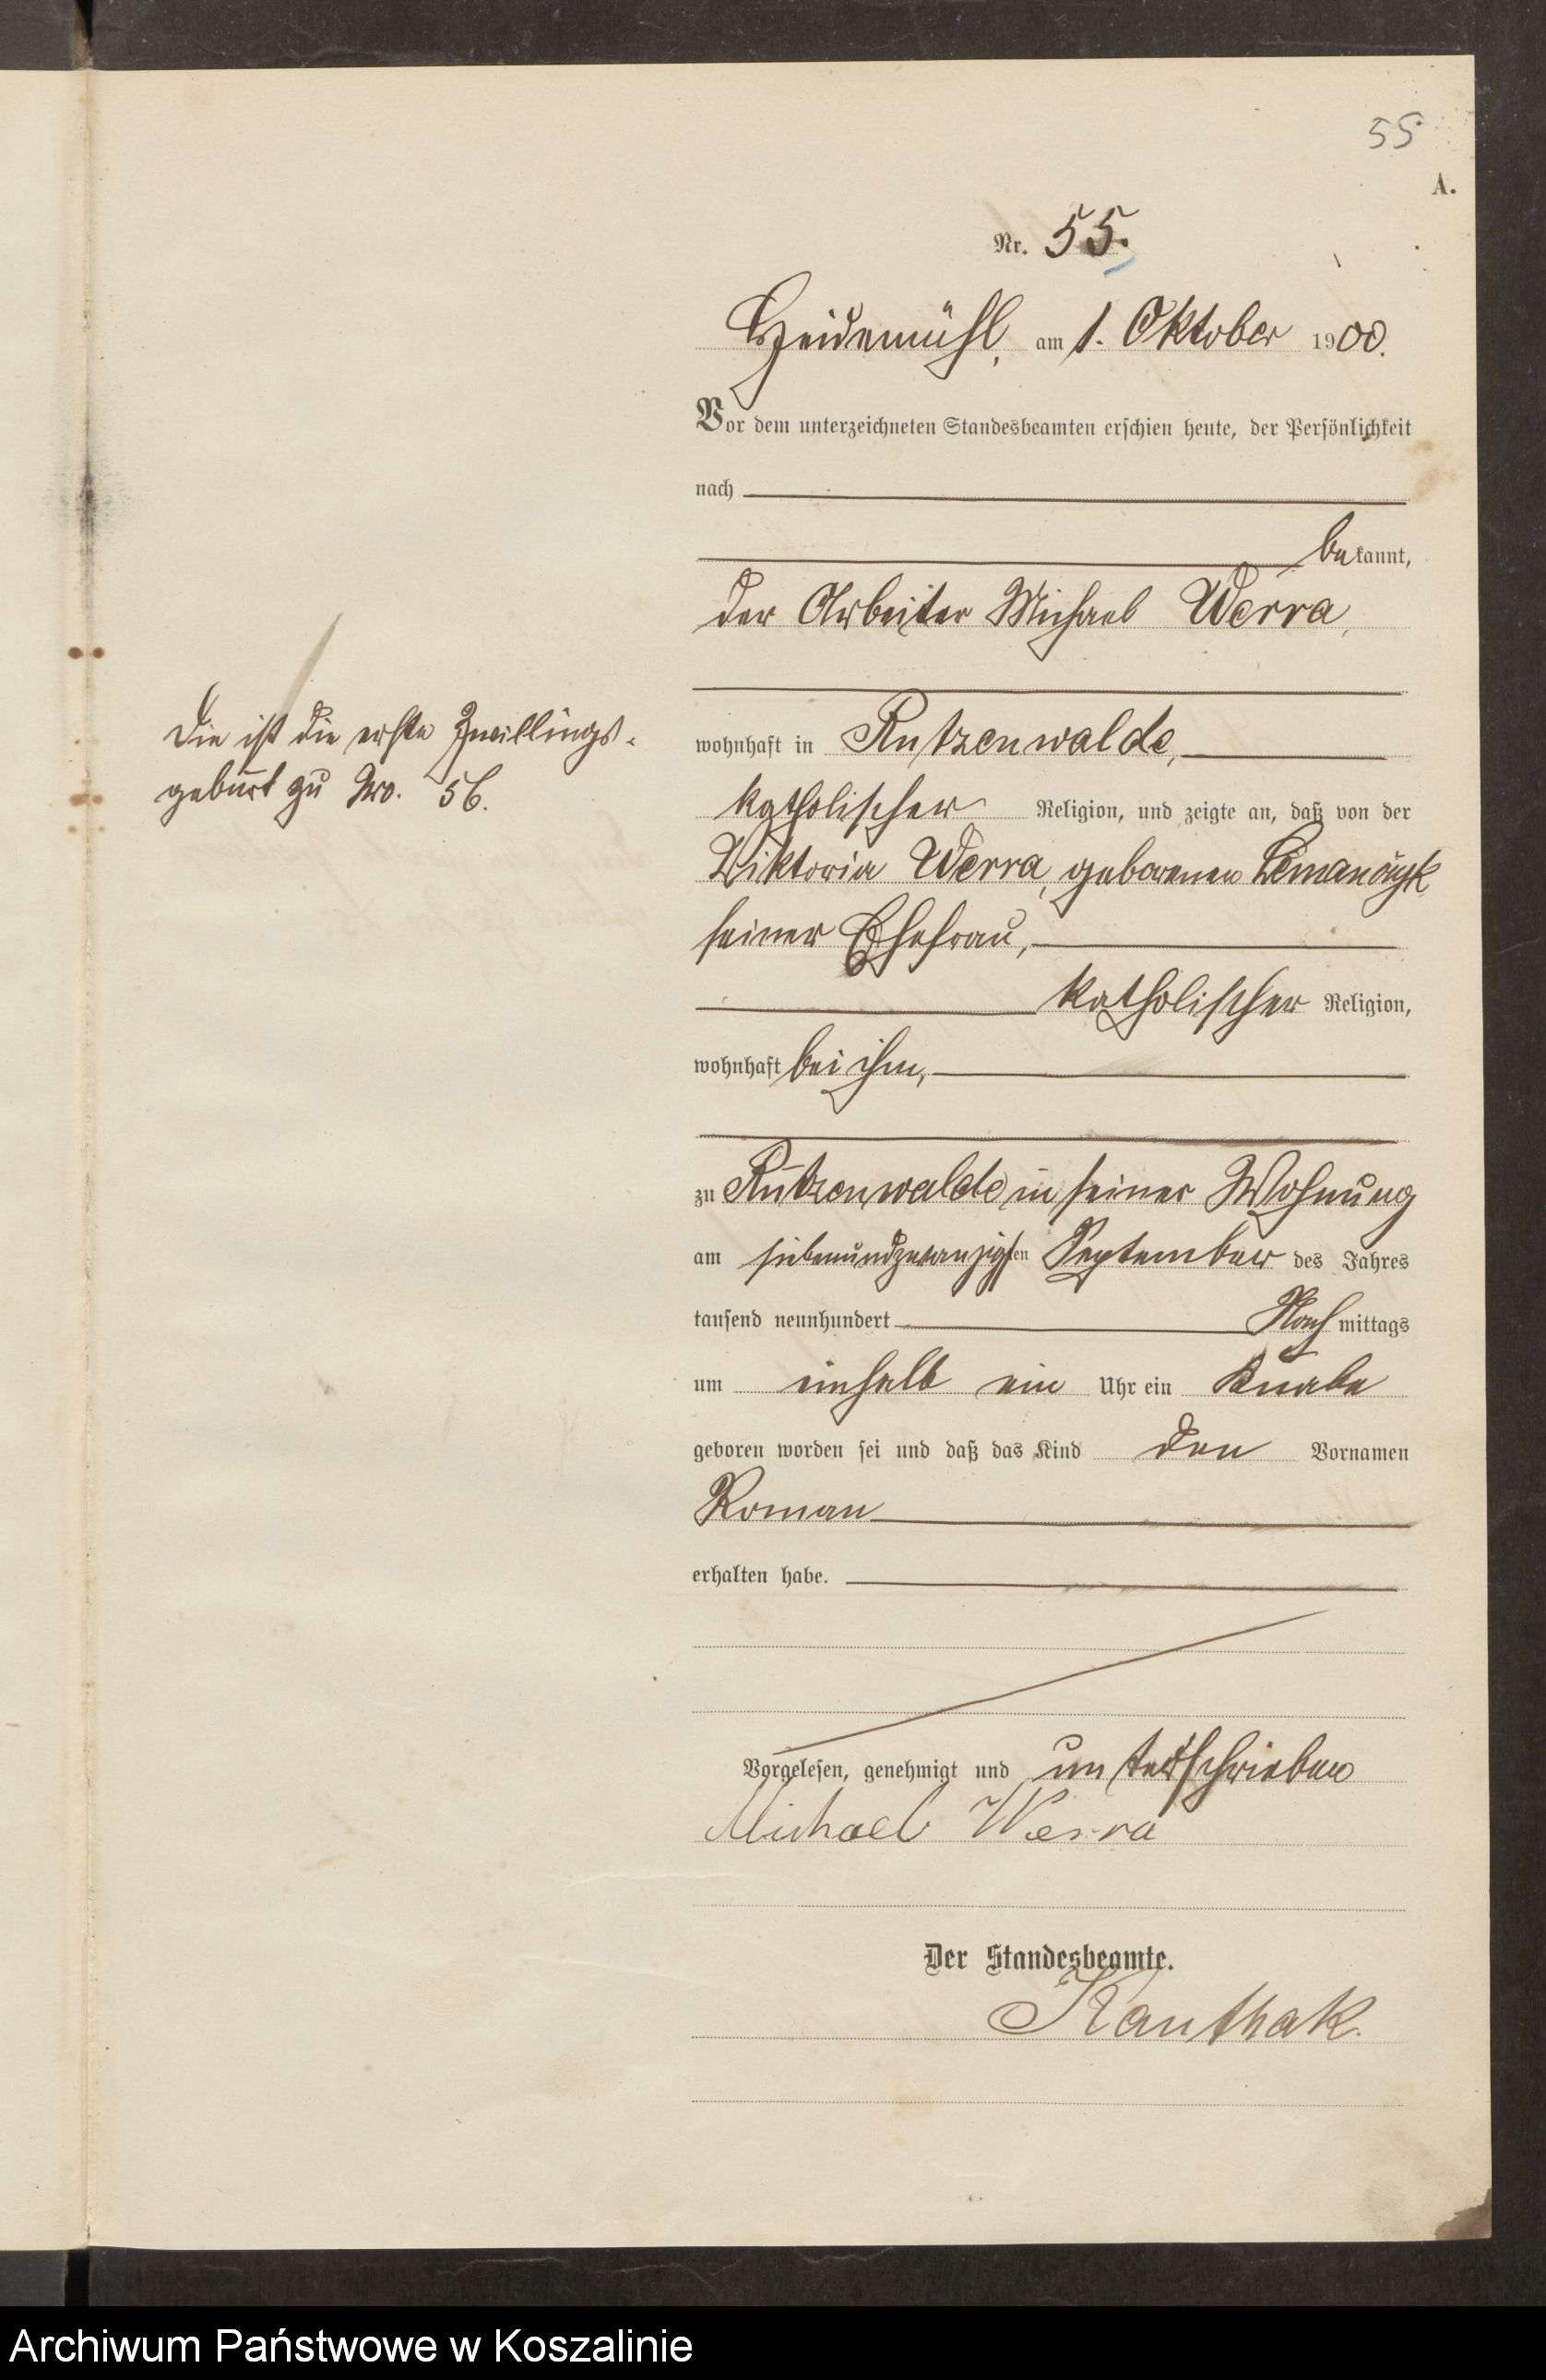 55
A.
Nr. 55.
Heidemühl, am 1. Oktober 1900.
Vor dem unterzeichneten Standesbeamten erschien heute, der Persönlichkeit
nach
bekannt,
der Arbeiter Michael Werra,
Die ist die erste Zwillings-
geburt zu No. 56.
wohnhaft in Rutzenwalde,
katholischer Religion, und zeigte an, daß von der
Viktoria Werra, geborenen
seiner Ehefrau,
katholischer Religion,
wohnhaft bei ihm,
zu Rützenwalde in seiner Wohnung
am siebenundzwanzigsten September des Jahres
tausend neunhundert Nachmittags
um einhalb ein Uhr ein Knabe
geboren worden sei und daß das Kind den Vornamen
Roman
erhalten habe.
Vorgelesen, genehmigt und unterschrieben
Michael Werra
Der Standesbeamte.
Kauthak.
Archiwum Państwowe w Koszalinie